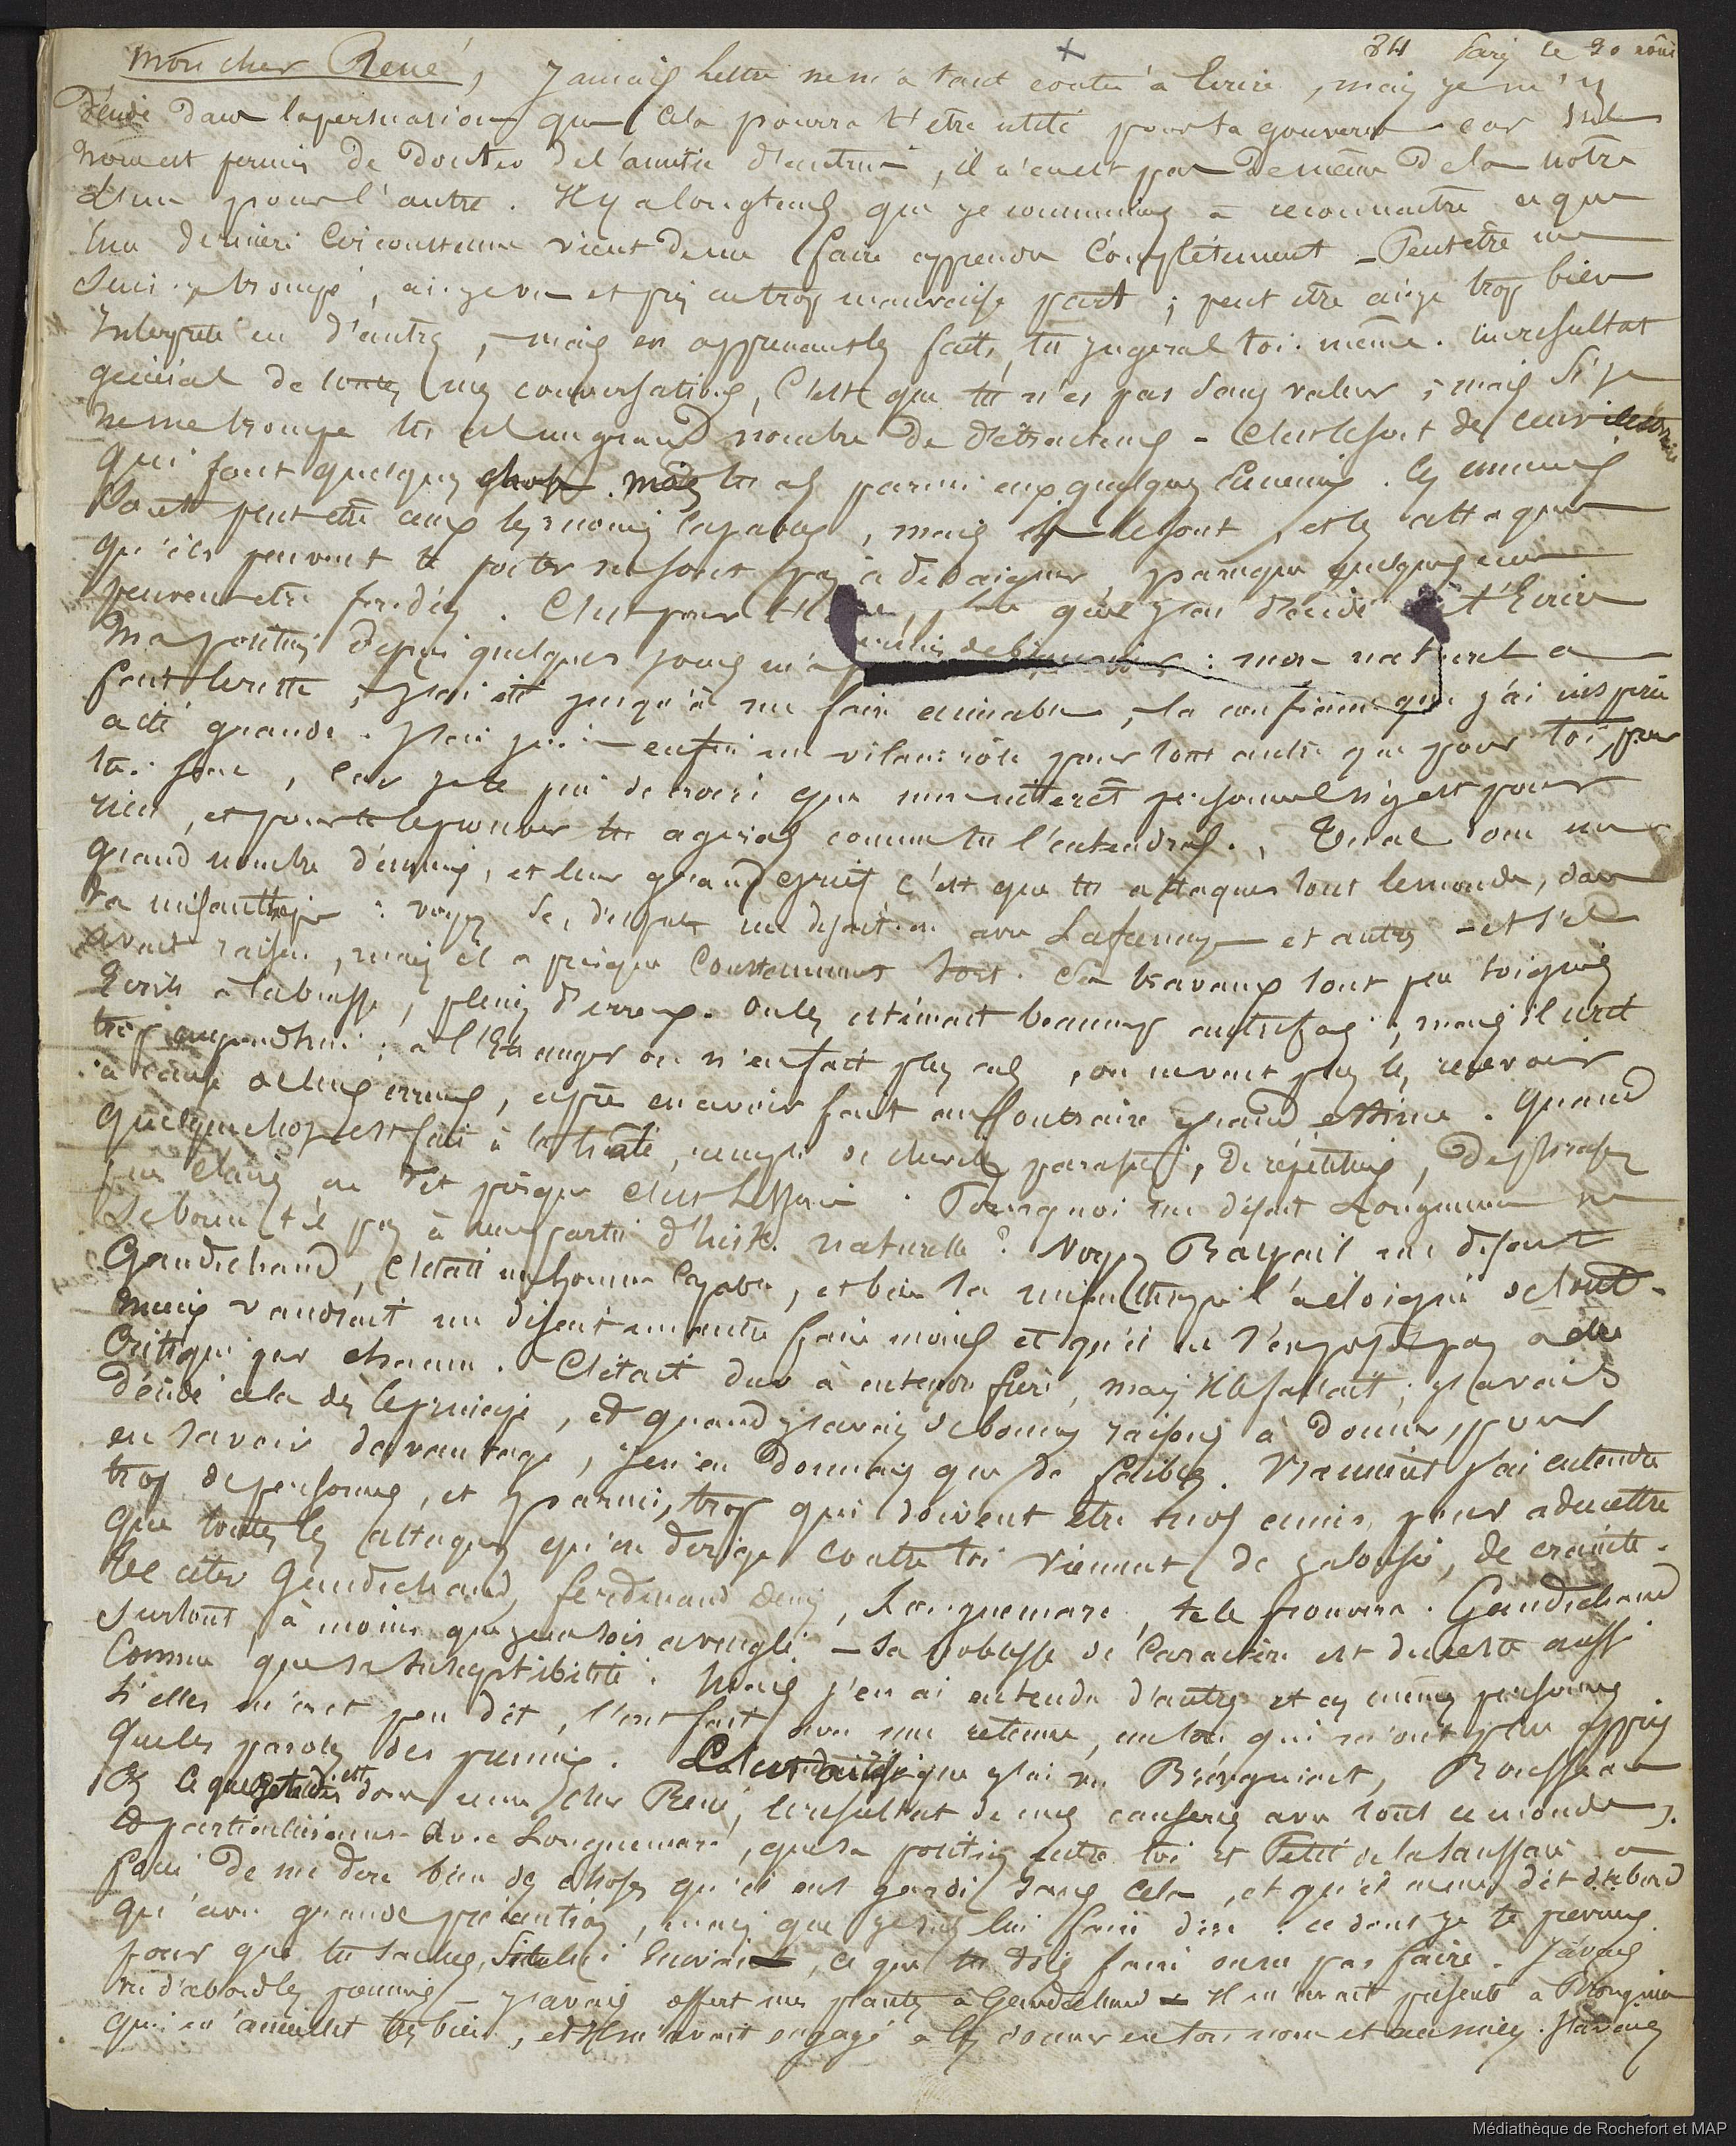 84 Paris le 30 août
Mon cher René, Jamais lettre ne m'a tant couté à Ecrire, mais je m'y
décide dans la persuasion que cela pourra t'être utile pour ta gouverne car s'il
nous est permis de douter de l'amitié d'autrui, il n'en est pas de même de la notre
l'un pour l'autre. Il y a longtems que je commençais à reconnaitre ce que
une derniere circonstance vient de me faire apprendre complétement _ Peut etre me
suis-je trompé, ai-je vu et pris en trop mauvaise part ; peut etre ai-je trop bien
Interprété en d'autres, mais en apprenant les faits, tu jugeras toi-même. Un resultat
général de toutes mes conversations, C'est que tu n'es pas sans valeur ; mais si je
ne me trompe tu as un grand nombre de détracteurs -
qui font quelques chose. mais tu as parmi eux quelques Ennemis. Ces ennemis
sont peut etre ceux les moins capables, mais ils le sont, et les attaques
qu'ils peuvent te porter ne sont pas à dedaigner, parceque quelques unes
peuvent etre fondées. C'est pour que j'ai décidé à t'Ecrire
Ma position depuis quelques jours m'a : mon naturel a
fait le reste, j'ai été jusqu'à me faire aimable, la confiance que j'ai inspiré
a été grande. J'ai joué enfin un vilain rôle pour tout autre que pour toi, pour
toi seul, car je te prie de croire que mon interêt personnel n'y est pour
rien, et pour te le prouver tu agiras comme tu l'entendras. Tu as donc un
grand nombre d'ennemis, et leur grand grief c'est que tu attaques tout le monde, dans
ta misanthropie : voyez sa dispute me disait-on avec Lafresnaye et autres - et s'il
avait raison, mais il a presque constamment tort. Ses travaux sont peu soignés
Ecrits à la brosse, pleins d'erreurs. On les estimait beaucoup autrefois ; mais il écrit
trop aujourdhui ; à l'Etranger on n'en fait plus cas, on ne veut plus les recevoir
à cause de leurs erreurs, après en avoir fait au contraire grand estime. Quand
quelque chose est fait à la hâte, rempli de de répétitions, de phrases
peu claires, on dit presque c'est Lesson. Pourquoi me disait Longuemare ne
se borne t-il pas à une partie d'hist. naturelle ? Voyez Raspail me disait
Gaudichaud, c'était un homme capable, et bien sa misanthropie l'a eloigné de tout.
Mieux vaudrait me disait un autre faire moins et qu'il ne s'exposat pas à etre
critiqué par chacun. C'était dur à entendre frère, mais il le fallait ; j'avais
décidé cela dès le principe, et quand j'avais de bonnes raisons à donner, pour
en savoir davantage, je n'en donnais que de faibles. Vraiment j'ai entendu
trop de personnes, et parmi, trop qui doivent etre nos amis, pour admettre
que toutes les attaques qu'on dirige contre toi viennent de jalousie, de crainte.
Te citer Gaudichaud, Ferdinand Denis, Longuemare te le prouvera. Gaudichaud
surtout, à moins que je ne sois aveuglé _ sa noblesse de caractère est du reste aussi
connue que sa susceptibilité. Mais j'en ai entendu d'autres et ces mêmes personnes
si elles m'ont peu dit, l'ont fait avec une retenue, un ton qui m'ont plus appris
que les paroles des premiers. que j'ai vu Brongniart, Rousseau
est donc mon cher René, le resultat de mes causeries avec tout ce monde,
et particulièrement avec Longuemare, que sa position entre toi et Petit de la Saussaie a
forcé de me dire bien des choses qu'il eut gardé sans cela, et qu'il ne m'a dit d'abord
qu'avec grande précaution, mais que je sus lui faire dire : ce dont je te préviens
pour que tu saches, si tu lui Ecrivais, ce que tu dois faire ou ne pas faire. J'avais
vu d'abord les premiers _ j'avais offert mes plantes à Gaudichaud _ Il m'avait présenté à Brongniart
qui m'accueillit très bien, et Il m'avait engagé à les donner en ton nom et au mien. J'avais
Médiathèque de Rochefort et MAP